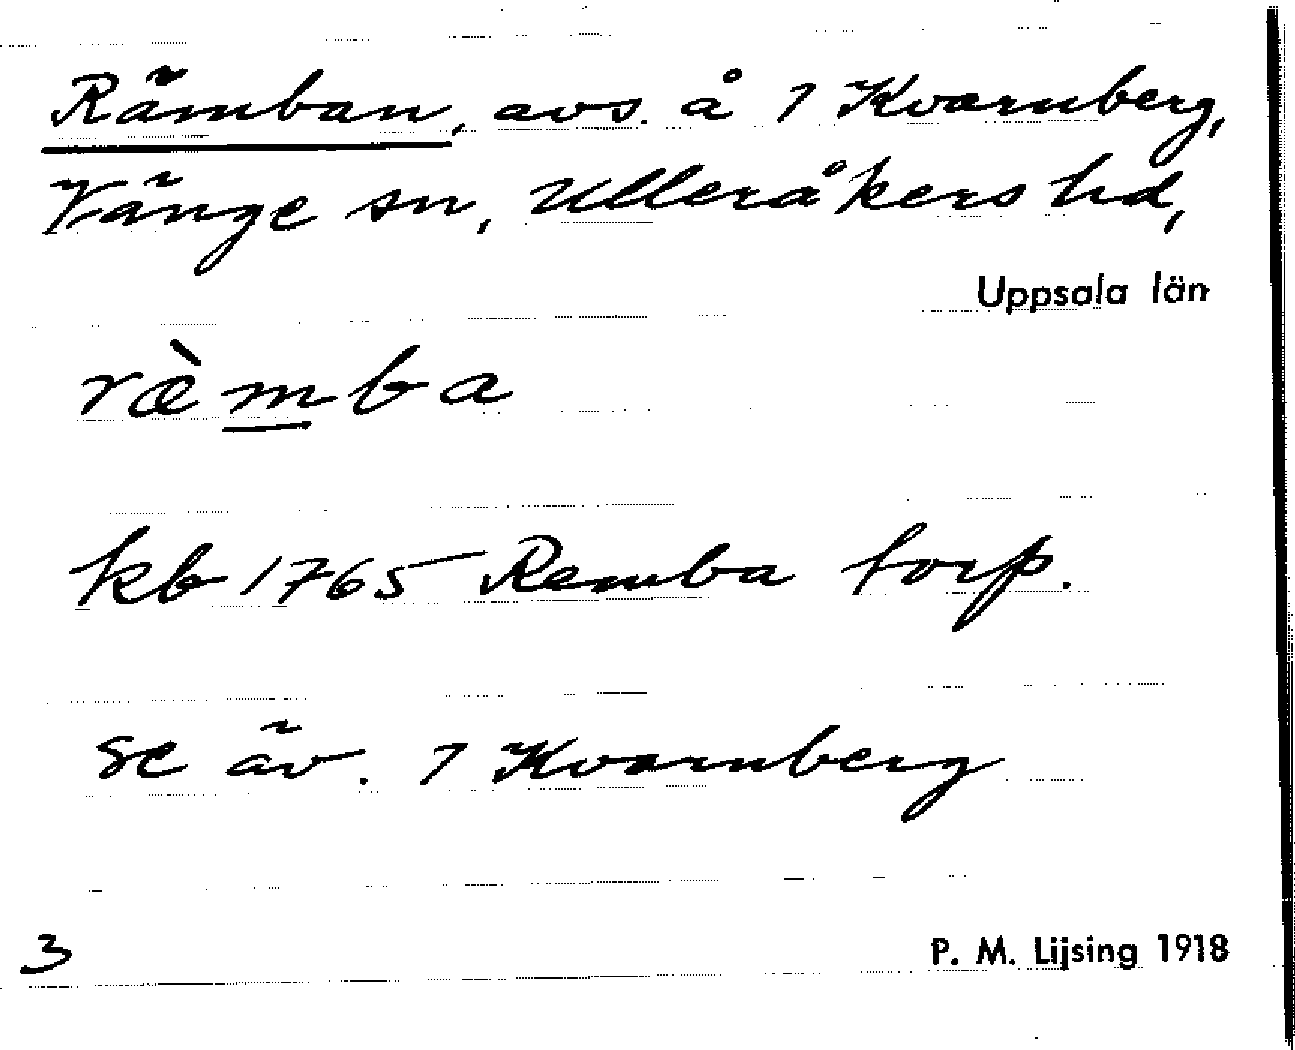 Rämban, avs. å 7 Kvarnberg,
Vänge sn, Ulleråkers hd,
Uppsala län
ræ̀mba
kb 1765 Remba torp.
se äv. 7 Kvarnberg
3
P. M. Lijsing 1918